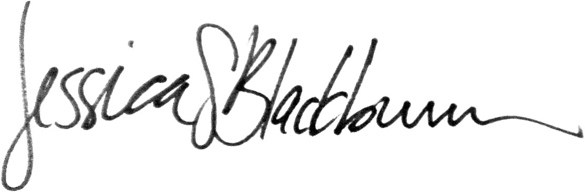 Jessica S Blackburn